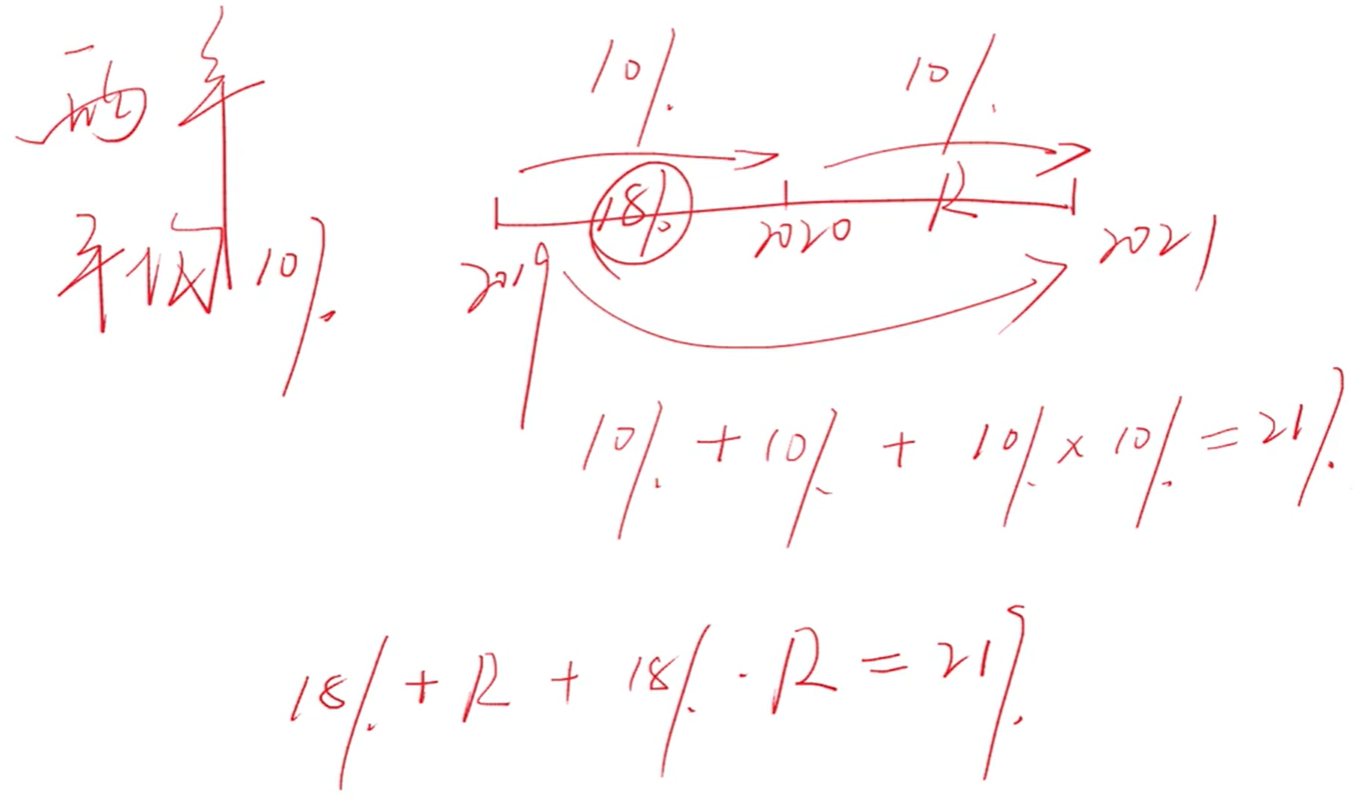 两年
年均10%
10% 10%
18% R
2019 2020 2021
10%+10%+10%×10%=21%
18%+R+18%·R=21%